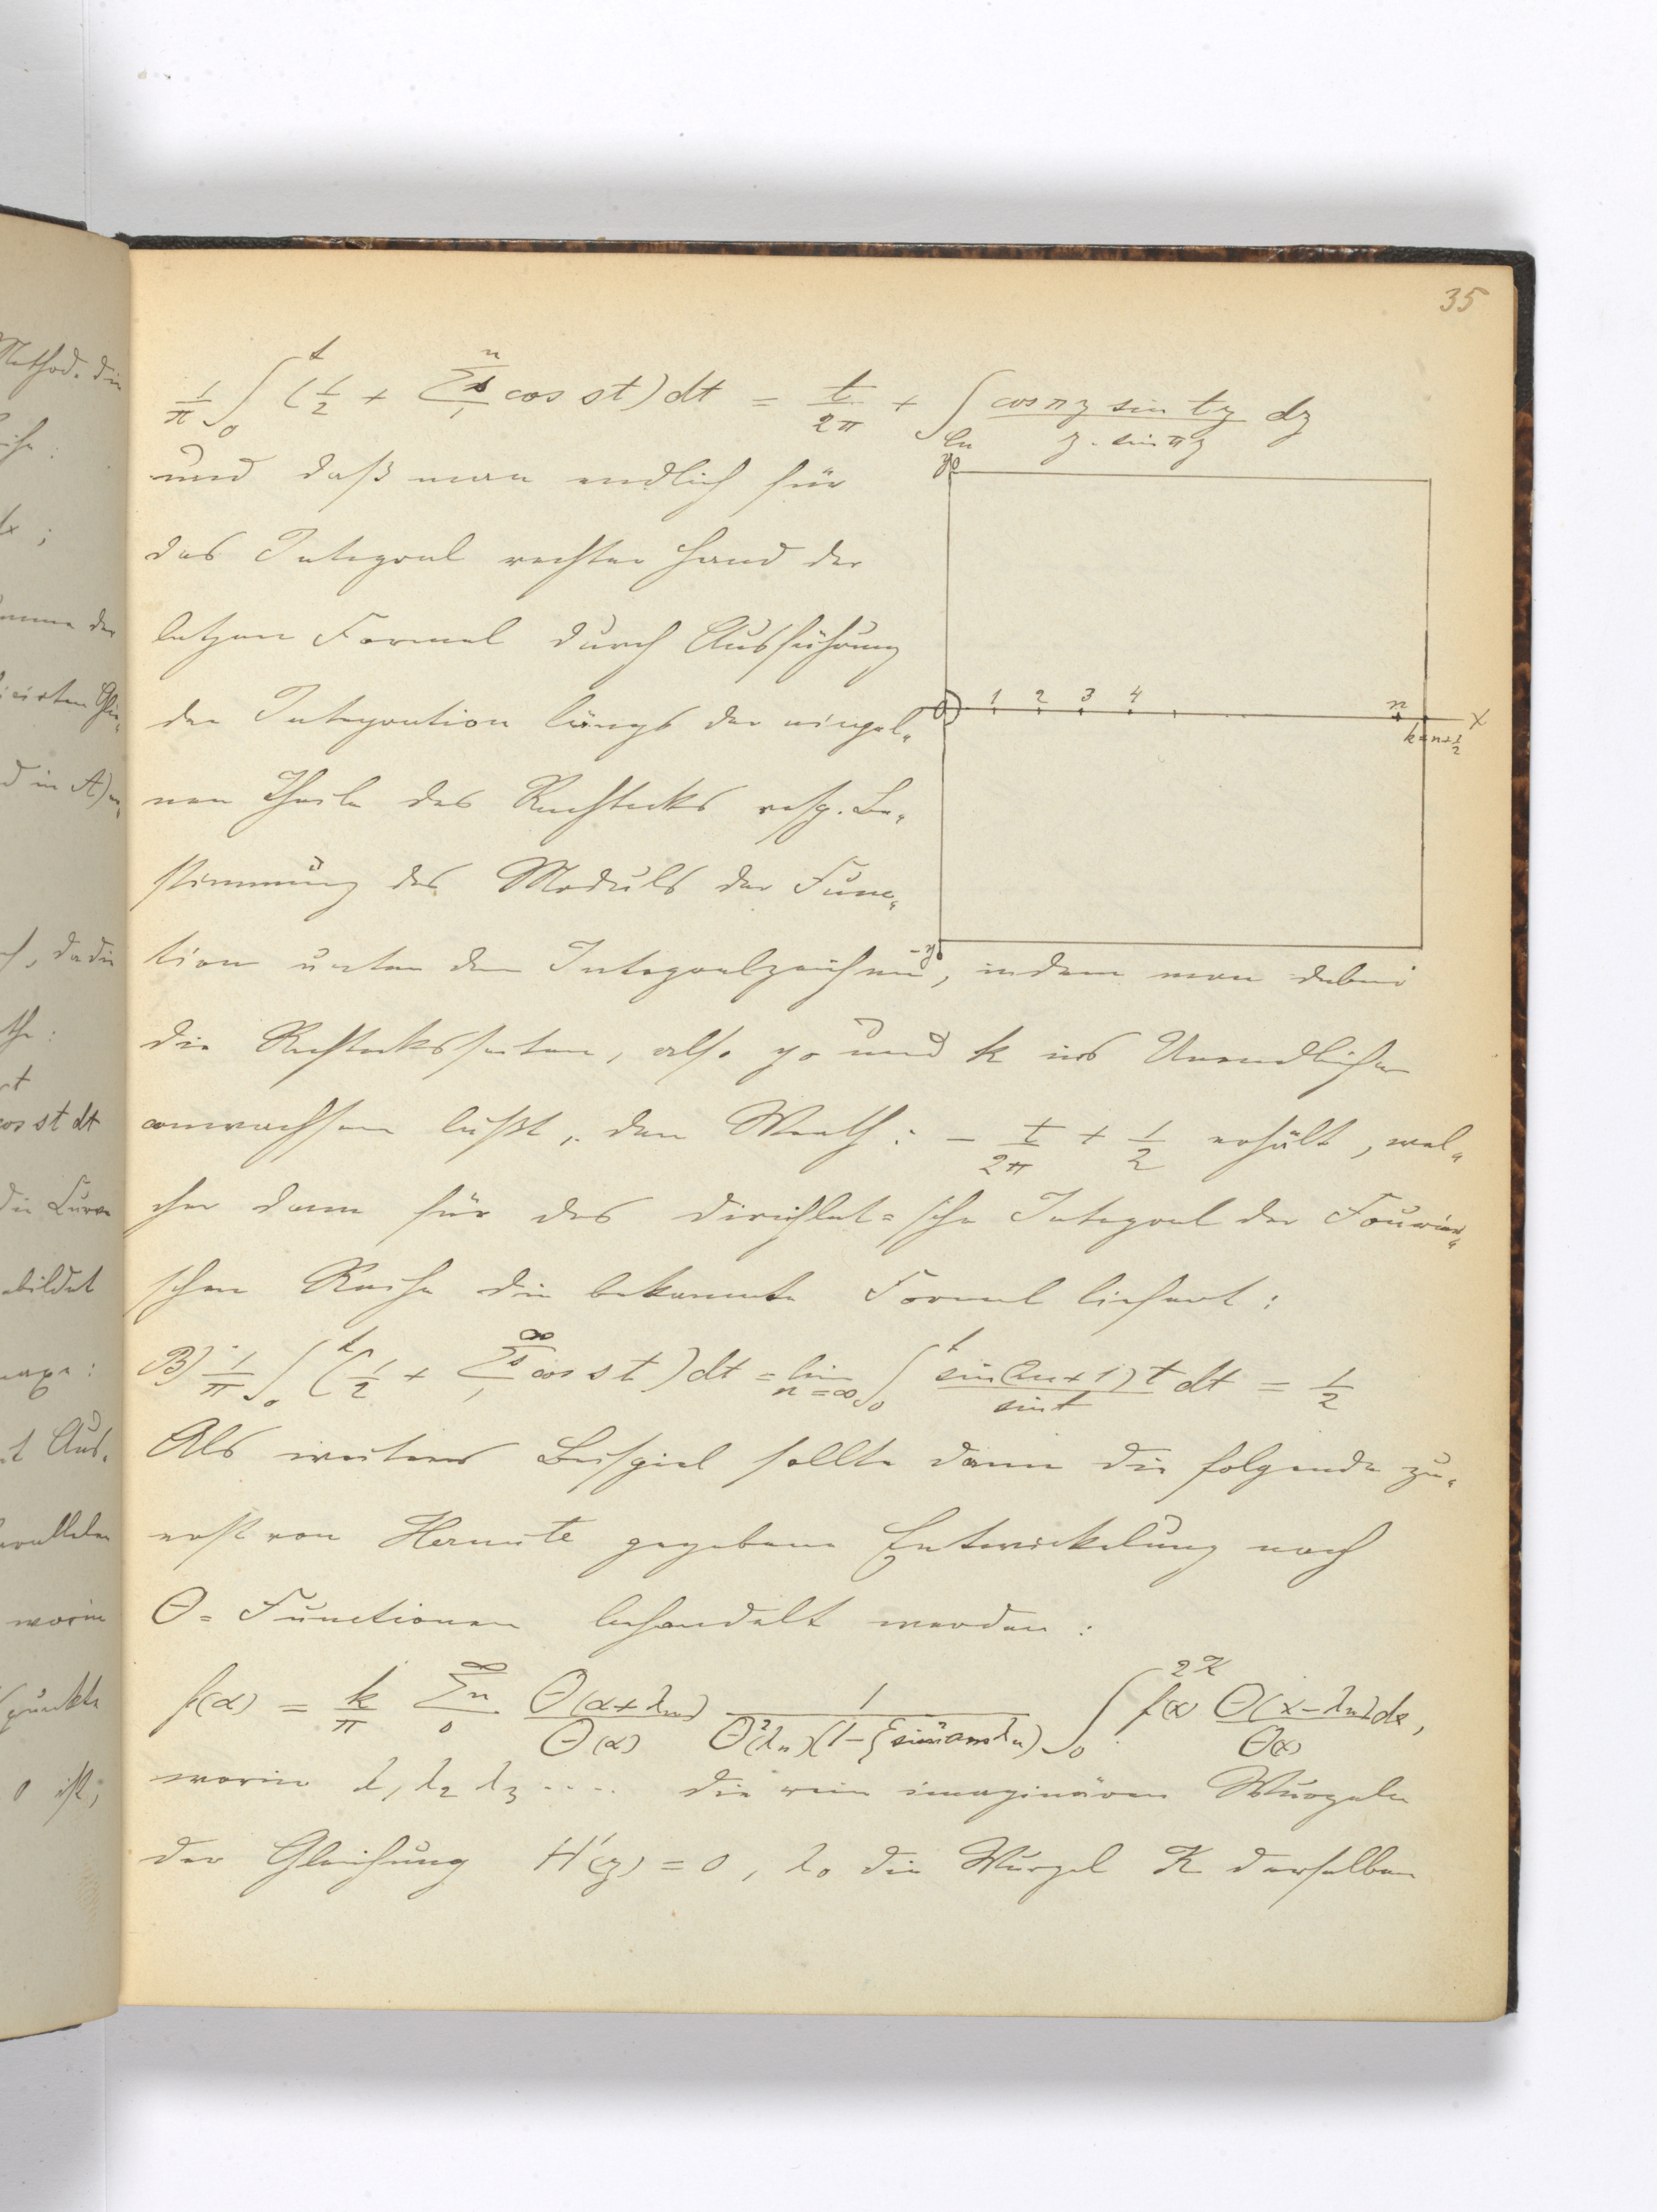 35
1/π ∫₀ᵗ (1/2 + Σˢ₁ⁿ cos st) dt = t/2π + ∫_{Cn} cos πz sin tz / z · sin πz dz
und daß man endlich für
das Integral rechter Hand der
letzten Formel durch Ausführung
der Integration längs der einzel„
nen Theile des Rechtecks resp. Be„
stimmung des Moduls der Func„
tion unter dem Integralzeichen, indem man dabei
die Rechtecksseiten, also y₀ und k ins Unendliche
anwachsen läßt, den Werth: – t/2π + 1/2 erhält, wel„
cher dann für das Dirichlet=sche Integral der Fourier„
schen Reihe die bekannte Formel liefert:
B) 1/π ∫₀ᵗ (1/2 + Σˢ₁^∞ cos st) dt = lim n=∞ ∫₀ᵗ sin(2n+1)t / sin t dt = 1/2
Als weiteres Beispiel sollte dann die folgende zu„
erst von Hermite gegebene Entwickelung nach
Θ=Functionen behandelt werden:
f(α) = k/π Σⁿ₀^∞ Θ(α+λn)/Θ(α) 1/Θ²(λn)(1– sin² am λn) ∫₀^{2K} f(x) Θ(x–λn)dx/Θ(x),
worin λ₁ λ₂ λ₃ .... die rein imaginären Wurzeln
der Gleichung H′(z) = 0, λ₀ die Wurzel K derselben
y₀
0 1 2 3 4 n x
k=n+1/2
–y₀
Method. die
cos st dt
die Curve
bildet
t Aus„
worin
punkte
0 ist,